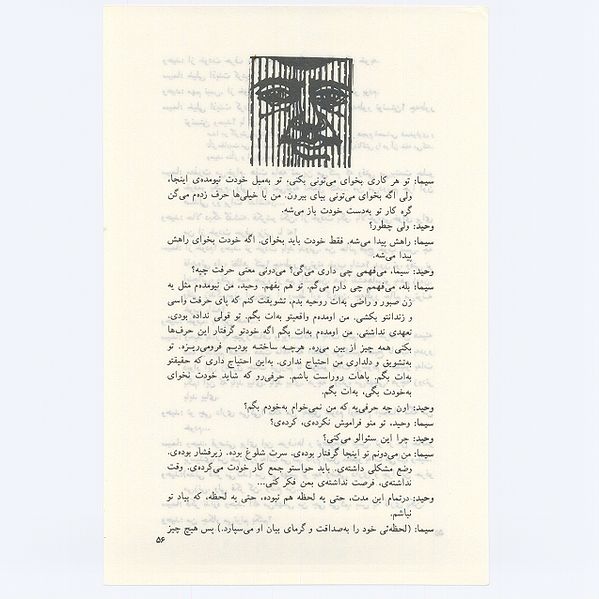 سیما: تو هر کاری بخوای می‌تونی بکنی. تو به‌میل خودت نیومده‌ی اینجا،
ولی اگه بخوای می‌تونی بیای بیرون. من با خیلی‌ها حرف زده‌م می‌گن
گره کار تو به‌دست خودت باز می‌شه.
وحید: ولی چطور؟
سیما: راهش پیدا می‌شه. فقط خودت باید بخوای. اگه خودت بخوای راهش
پیدا می‌شه.
وحید: سیما، می‌فهمی چی داری می‌گی؟ می‌دونی معنی حرفت چیه؟
سیما: بله، می‌فهمم چی دارم می‌گم. تو هم بفهم. وحید، من نیومده‌م مثل یه
زن صبور و راضی به‌ات روحیه بدم، تشویقت کنم که پای حرفت واسی
و زندانتو بکشی. من اومده‌م واقعیتو به‌ات بگم. تو قولی نداده بودی.
تعهدی نداشتی. من اومده‌م به‌ات بگم اگه خودتو گرفتار این حرف‌ها
بکنی همه چیز از بین می‌ره. هرچـه ساختـه بودیـم فرومی‌ریـزه. تو
به‌تشویق و دلداری من احتیاج نداری. به‌این احتیاج داری که حقیقتو
به‌ات بگم. باهات روراست باشم. حرفی‌رو که شاید خودت نخوای
به‌خودت بگی، به‌ات بگم.
وحید: اون چه حرفی‌یه که من نمی‌خوام به‌خودم بگم؟
سیما: وحید، تو منو فراموش نکرده‌ی، کرده‌ی؟
وحید: چرا این سئوالو می‌کنی؟
سیما: من می‌دونم تو اینجا گرفتار بوده‌ی. سرت شلوغ بوده. زیرفشار بوده‌ی.
وضع مشکلی داشته‌ی. باید حواستو جمع کار خودت می‌کرده‌ی. وقت
نداشته‌ی، فرصت نداشته‌ی بمن فکر کنی...
وحید: درتمام این مدت، حتی یه لحظه هم نبوده، حتی یه لحظه، که بیاد تو
نباشم.
سیما: (لحظه‌ئی خود را به‌صداقت و گرمای بیان او می‌سپارد.) پس هیچ چیز
۵۶